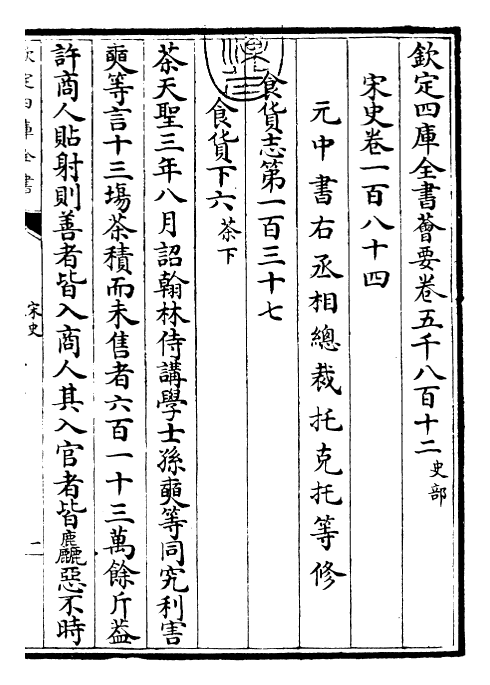 欽定四庫全書薈要卷五千八百十二史部
宋史卷一百八十四
元中書右丞相總裁托克托等修
食貨志第一百三十七
食貨下六茶下
茶天聖三年八月詔翰林侍講學士孫奭等同究利害
奭等言十三場茶積而未售者六百一十三萬餘斤葢
許商人貼射則善者皆入商人其入官者皆麤惡不時
欽定四庫全書
宋史